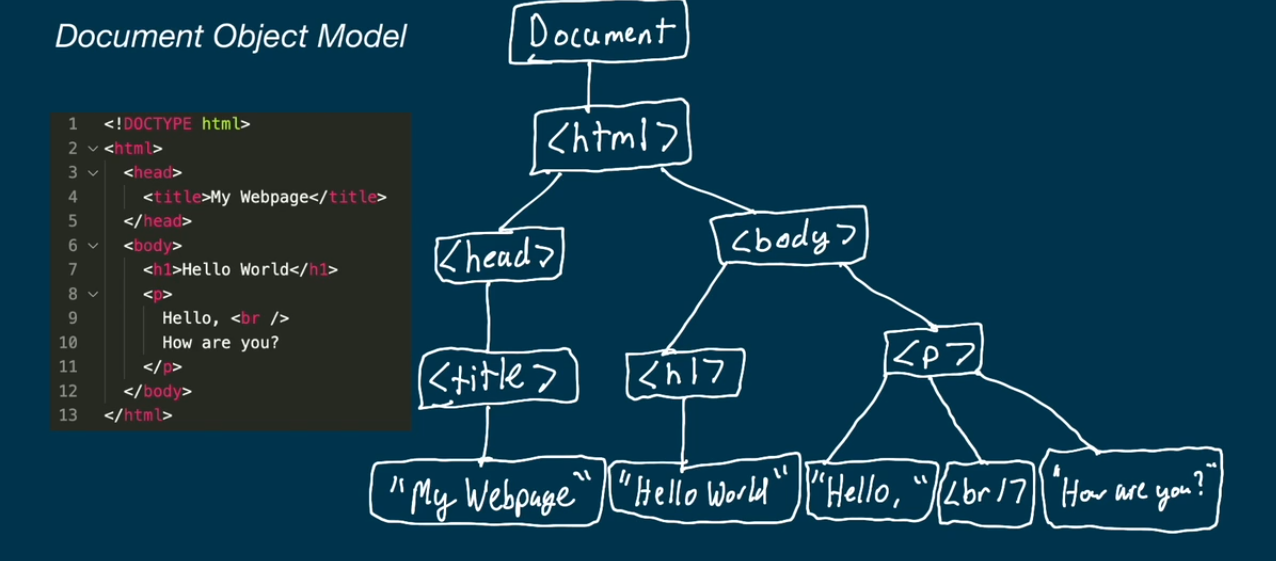 Document Object Model
1 <!DOCTYPE html>
2 <html>
3 <head>
4 <title>My Webpage</title>
5 </head>
6 <body>
7 <h1>Hello World</h1>
8 <p>
9 Hello, <br />
10 How are you?
11 </p>
12 </body>
13 </html>
Document
<html>
<head>
<body>
<title>
<h1>
<p>
"My Webpage"
"Hello World"
"Hello,"
<br/>
"How are you?"